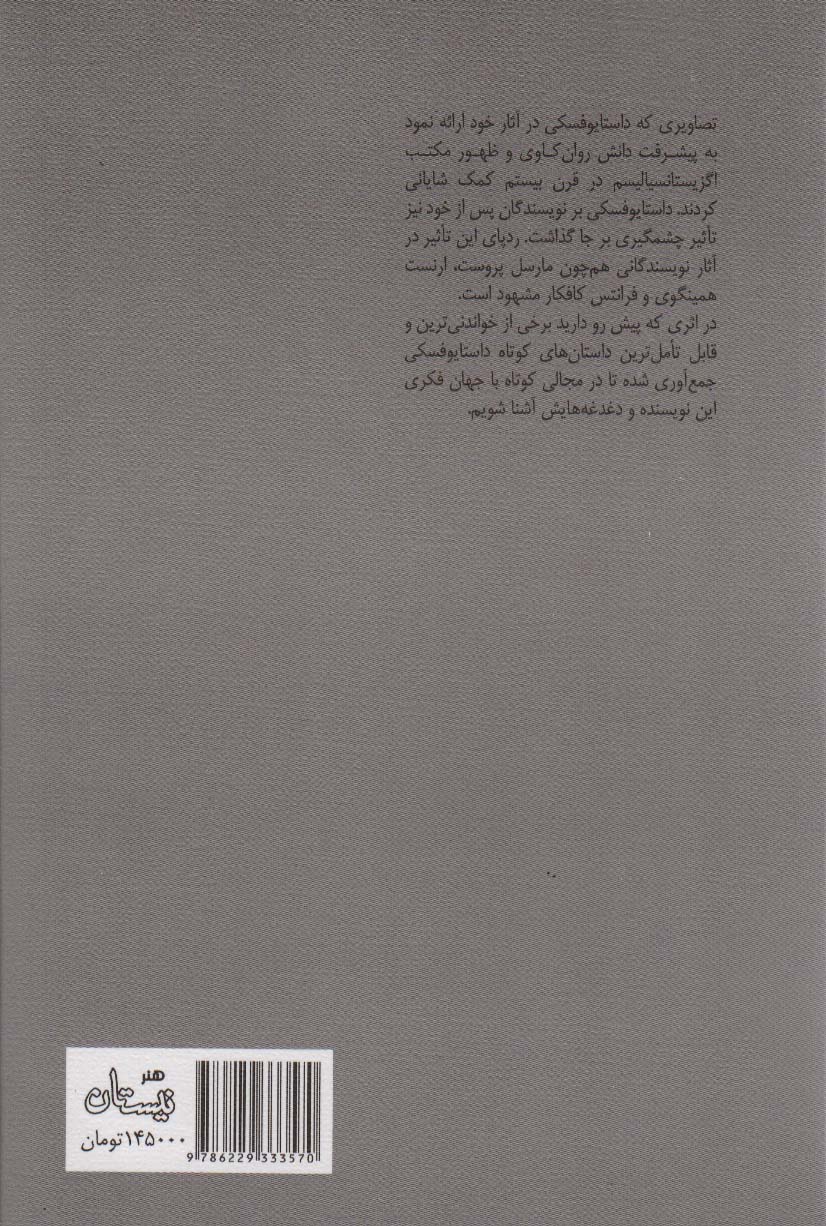 تصاویری که داستایوفسکی در آثار خود ارائه نمود
به پیشرفت دانش روان‌کاوی و ظهور مکتب
اگزیستانسیالیسم در قرن بیستم کمک شایانی
کردند. داستایوفسکی بر نویسندگان پس از خود نیز
تأثیر چشمگیری بر جا گذاشت. ردپای این تأثیر در
آثار نویسندگانی هم‌چون مارسل پروست، ارنست
همینگوی و فرانتس کافکار مشهود است.
در اثری که پیش رو دارید برخی از خواندنی‌ترین و
قابل تأمل‌ترین داستان‌های کوتاه داستایوفسکی
جمع‌آوری شده تا در مجالی کوتاه با جهان فکری
این نویسنده و دغدغه‌هایش آشنا شویم.
هنر
نیستان
۱۴۵۰۰۰تومان
9 786229 333570